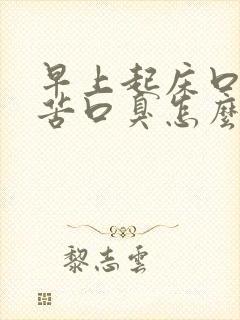 早上起床口
苦口臭怎麼
黎志雲